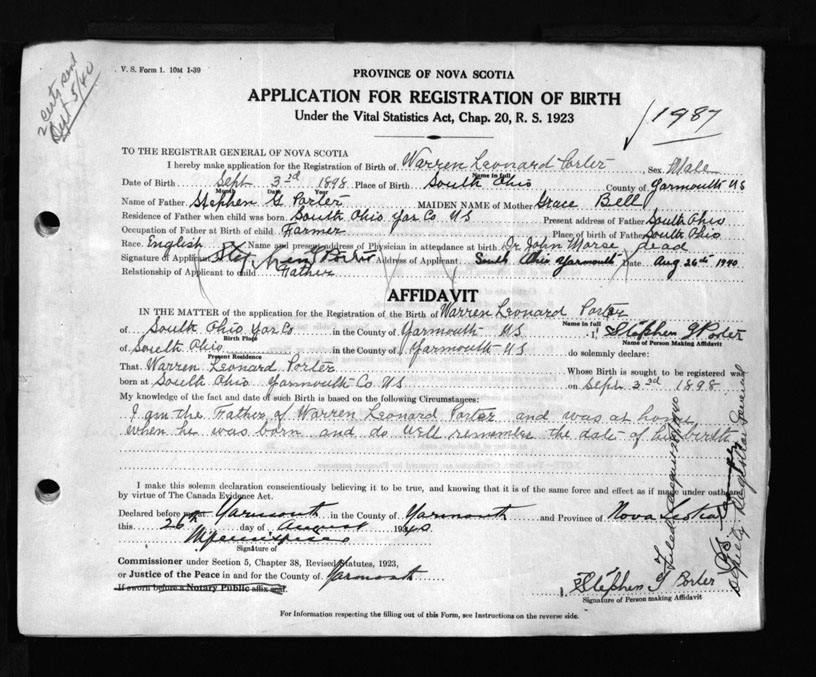 2 certs sent
Sept 5/40
V. S. Form 1. 10M 1-39
PROVINCE OF NOVA SCOTIA
APPLICATION FOR REGISTRATION OF BIRTH
Under the Vital Statistics Act, Chap. 20, R. S. 1923
1987
TO THE REGISTRAR GENERAL OF NOVA SCOTIA
I hereby make application for the Registration of Birth of Warren Leonard Porter, Sex Male
Name in full
Date of Birth Sept 3rd 1898 Place of Birth South Ohio County of Yarmouth NS
Month Date Year
Name of Father Stephen G Porter MAIDEN NAME of Mother Grace Bell
Residence of Father when child was born South Ohio Yar Co NS Present address of Father South Ohio
Occupation of Father at Birth of child Farmer Place of birth of Father South Ohio
Race English Name and present address of Physician in attendance at birth Dr John Morse dead
Signature of Applicant Stephen G Porter Address of Applicant South Ohio Yarmouth Date Aug 26th 1940
Relationship of Applicant to child Father
AFFIDAVIT
IN THE MATTER of the application for Registration of the Birth of Warren Leonard Porter
Name in full
of South Ohio Yar Co in the County of Yarmouth NS I Stephen G Porter
Birth Place Name of Person Making Affidavit
of South Ohio in the County of Yarmouth NS do solemnly declare:
Present Residence
That Warren Leonard Porter Whose Birth is sought to be registered was
born at South Ohio Yarmouth Co NS on Sept 3rd 1898
My knowledge of the fact and date of such Birth is based on the following Circumstances:
I am the Father of Warren Leonard Porter and was at home
when he was born and do well remember the date of his birth
I make this solemn declaration conscientiously believing it to be true, and knowing that it is of the same force and effect as if made under oath and
by virtue of The Canada Evidence Act.
Declared before me at Yarmouth in the County of Yarmouth and Province of Nova Scotia
this 26th day of August 1940
Signature of
Commissioner under Section 5, Chapter 38, Revised Statutes, 1923,
or Justice of the Peace in and for the County of Yarmouth
If sworn before a Notary Public affix seal.
Stephen G Porter
Signature of Person making Affidavit
For Information respecting the filling out of this Form, see Instructions on the reverse side.
Filed August
Deputy Registrar General